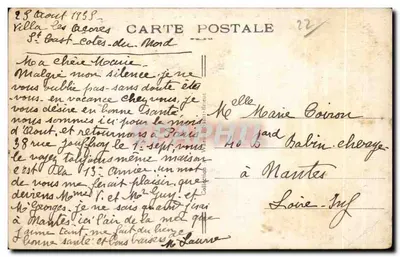 25 Aout 1938
Villa Les Açores
St Cast Cotes-du-Nord
CARTE POSTALE
22
Ma chère Marie
Malgré mon silence, je ne
vous oublie pas sans doute êtes
vous en vacance chez vous, je
vous désire en bonne santé
nous sommes ici pour le mois
d'Aout, et retournons à Paris
38 rue Jouffroy le 1er sept, vous
le voyez toujours même maison
c'est la 13e année un mot
de vous me ferait plaisir, que
deviens Mme et Mr Guy, et
Mr Georges, je ne sais quand j'irai
à Nantes ici l'air de la mer que
j'aime tant me fait du bien
bonne santé et bons baisers
M Laurre
Melle Marie Coiron
40 Bd Babin-chevaye
à Nantes
Loire-Inf